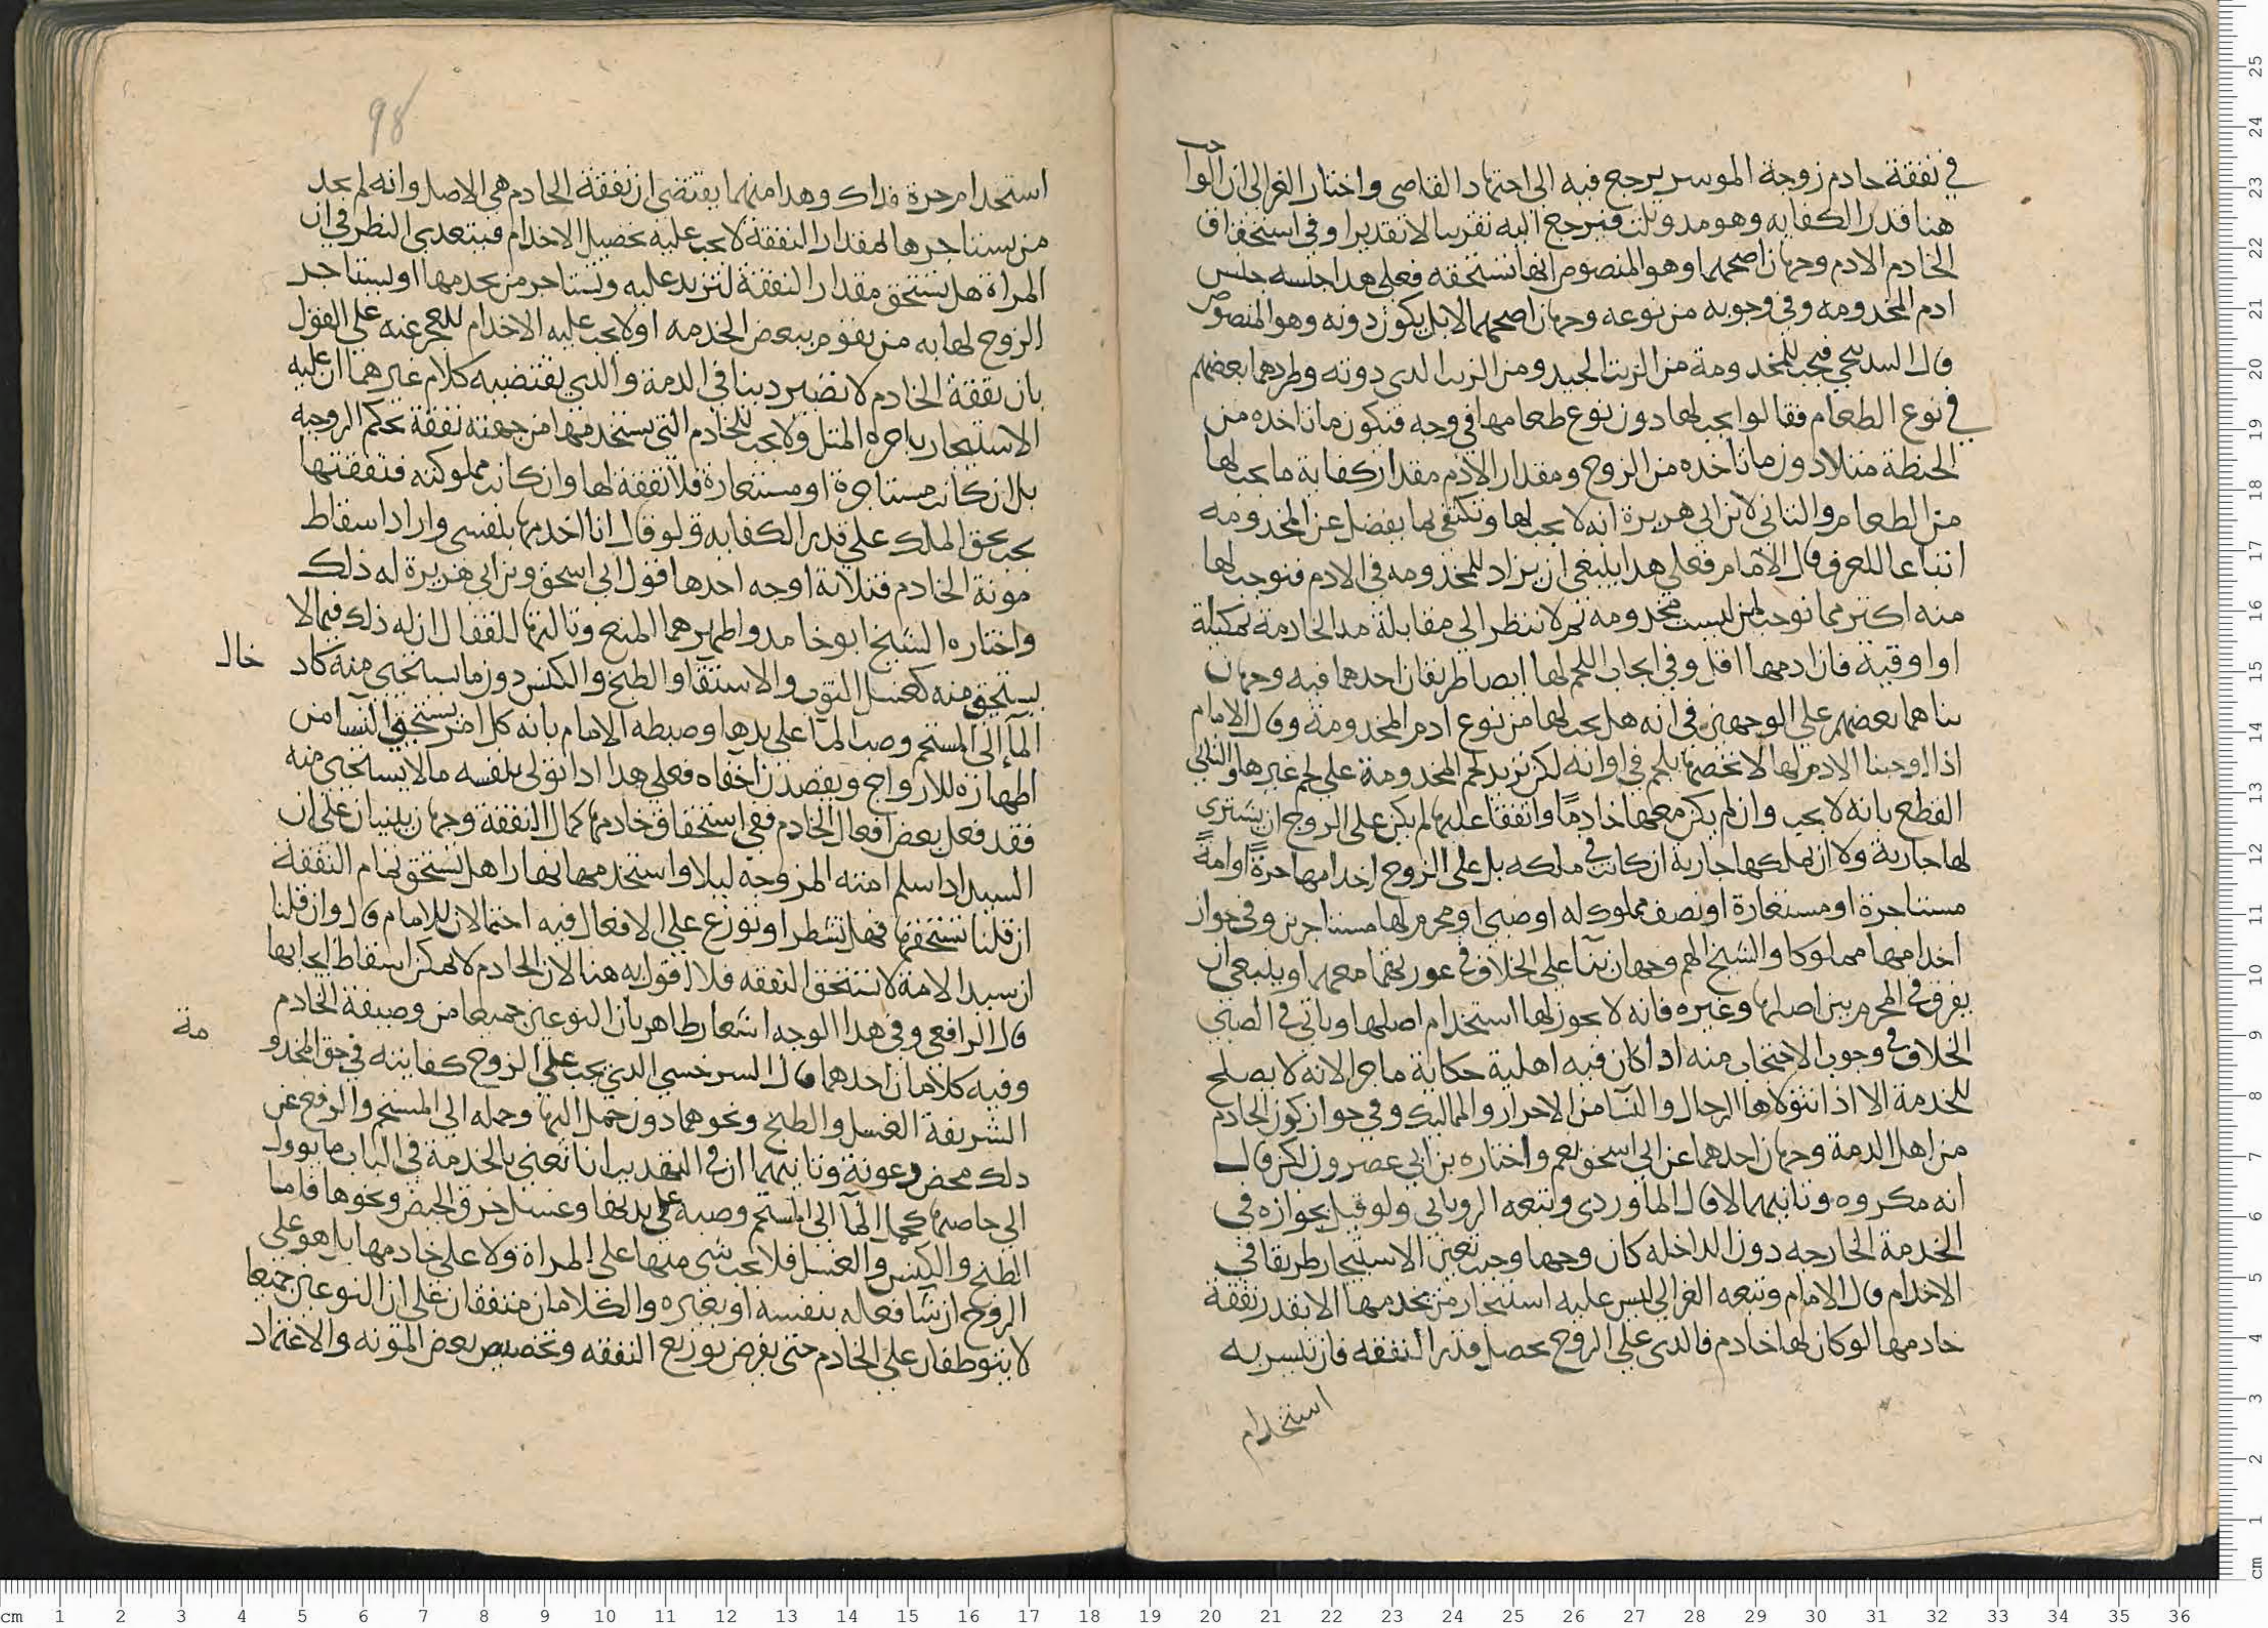 في نفقة خادم زوجة الموسر يرجع فيه الى اجتهاد القاضى واختار الغزالى ان الواجب
هنا قدر الكفايه وهو مد وثلث فيرجع اليه تقريبا لا تقديرا وفى استحقاق
الخادم الادم وجهان اصحهما وهو المنصوص انها تستحقه فعلى هذا جنسه جنس
ادم المخدومه وفى وجوبه من نوعه وجهان اصحهما لا بل يكون دونه وهو المنصوص
قال البندنيجي فيجب للمخدومة من الزيت الجيد ومن الزيت الذى دونه وطردهما بعضهم
في نوع الطعام فقالوا يجب لها دون نوع طعامها في وجه فتكون ما تاخذه من
الحنطة مثلا دون ما تاخذه من الزوج ومقدار الادم مقدار كفاية ما يجب لها
من الطعام والثاني لابن ابى هريرة انه لا يجب لها وتكتفى بما يفضل عن المخدومه
اتباعا للعرف قال الامام فعلى هذا ينبغى ان يزاد للمخدومه في الادم فنوجب لها
منه اكثر مما نوجب لمن ليست مخدومة ثم لا ننظر الى مقابلة مد الخادمة بمكيلة
او اوقية فان ادمها اقل وفى ايجاب اللحم لها ايضا طريقان احدهما فيه وجهان
بناهما بعضهم على الوجهين في انه هل يجب لها من نوع ادم المخدومة وقال الامام
اذا اوجبنا الادم لها لا نخصها بلحم في اوانه لكن نزيد لحم المخدومة على لحم غيرها والثانى
القطع بانه لا يجب وان لم يكن معها خادمًا واتفقا عليها لم يكن على الزوج ان يشترى
لها جارية ولا ان يملكها جارية ان كانت في ملكه بل على الزوج اخدامها حرةً او امةً
مستاجرة او مستعارة او نصف مملوك له او صبى او محرم لها مستاجرين وفى جواز
اخدامها مملوكا والشيخ الهم وجهان بناء على الخلاف في عورتهما معهما وينبغى ان
يفرق في المحرم بين اصلها وغيره فانه لا يجوز لها استخدام اصلها وياتي في الصبي
الخلاف في وجوب الاحتجاب منه اذا كان فيه اهلية حكاية ما جرا لانه لا يصلح
للخدمة الا اذا انتولاها الرجال والنسا من الاحرار والمماليك وفى جواز كون الخادم
من اهل الذمة وجهان احدهما عن ابى اسحق نعم واختاره بن ابي عصرون لكن قال
انه مكروه وثانيهما لا قال الماوردى وتبعه الروياني ولو قيل بجوازه في
الخدمة الخارجه دون الداخله كان وجها وحيث تعين الاستيجار طريقا في
الاخدام قال الامام وتبعه الغزالى ليس عليه استيجار من يخدمها الا بقدر نفقة
خادمها لو كان لها خادم فالذى على الزوج تحصل قدر النفقه فان تيسر به
استخدام
98
استخدام حرة فذاك وهذا منهما يقتضى ان نفقة الخادم هي الاصل وانه لم يجد
من يستاجرها لمقدار النفقة لا يجب عليه تحصيل الاخدام فيتعدى النظر في ان
المراة هل تستحق مقدار النفقة لتزيد عليه وتستاجر من يخدمها او ليستاجر
الزوج لها به من يقوم ببعض الخدمه او لا يجب عليه الاخدام للعجز عنه على القول
بان نفقة الخادم لا تصير دينا في الذمة والذي يقتضيه كلام غيرهما ان عليه
الاستيجار باجرة المثل ولا يجب للخادم التي يستخدمها من جهته نفقة بحكم الزوجية
بل ان كانت مستاجرة او مستعارة فلا نفقة لها وان كانت مملوكته فنفقتها
تجب بحق الملك على قدر الكفايه ولو قال انا اخدمها بنفسى واراد اسقاط
مونة الخادم فثلاثة اوجه احدها قول ابى اسحق وبن ابى هريرة له ذلك
واختاره الشيخ ابو حامد واظهرهما المنع وثالثها للقفال ان له ذلك فيما لا
يستحق منه كغسل الثوب والاستقا والطبخ والكنس دون ما يستحى منه كاد
خال
المآ الى المستحم وصب المآ على يدها وضبطه الامام بانه كل امر يستحق النسا من
اظهاره للازواج ويقصدن اخفاه فعلى هذا اذا تولى بنفسه ما لا يستحى منه
فقد فعل بعض افعال الخادم ففى استحقاق خادمها كمال النفقة وجهان يبنيان على ان
السيد اذا سلم امته المزوجة ليلا واستخدمها نهارا هل تستحق تمام النفقة
ان قلنا تستحقها فهل تشطر او توزع على الافعال فيه احتمالان للامام قال وان قلنا
ان سيد الامة لا تستحق النفقه فلا اقول به هنا لان الخادم لا يمكن اسقاط ايجابها
قال الرافعي وفى هذا الوجه اشعار ظاهر بان النوعين جميعا من وظيفة الخادم
وفيه كلامان احدهما قال السرخسي الذي يجب على الزوج كفايته في حق المخدو
مة
الشريفة الغسل والطبخ ونحوهما دون حمل اليها وحمله الى المستحم والرفع عن
ذلك محض رعونة وثانيهما ان في التهذيب انا نعني بالخدمة في الباب ما يوول
الى خاصتها كحمل المآ الى المستحم وصبه على يديها وغسل خرق الحيض ونحوها فاما
الطبخ والكنس والغسل فلا يجب شى منها على المراة ولا على خادمها بل هو على
الزوج ان شا فعله بنفسه او بغيره والكلامان متفقان على ان النوعين جميعا
لا يتوظفان على الخادم حتى يفرض توزيع النفقه وتخصيص بعض المؤنه والاعتماد